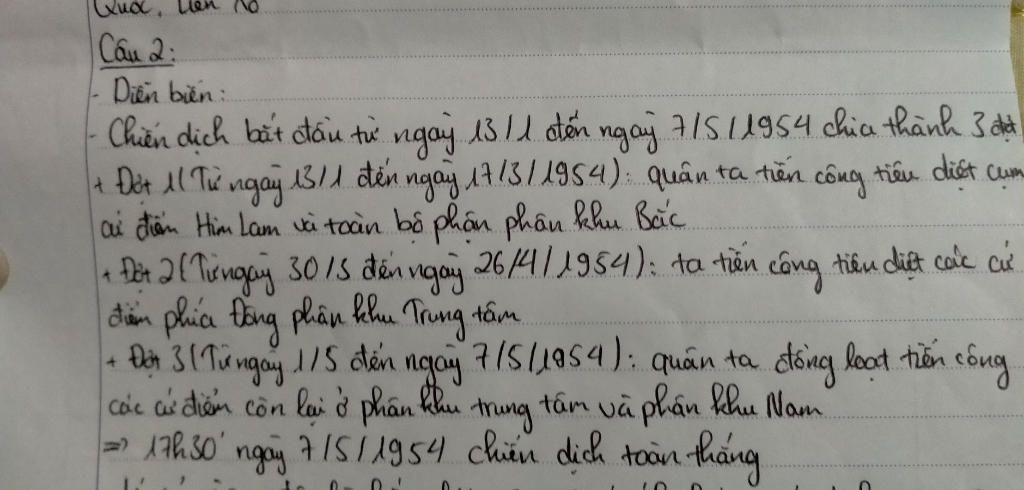 Quốc, Liên Xô
Câu 2:
- Diễn biến:
- Chiến dịch bắt đầu từ ngày 13/1 đến ngày 7/5/1954 chia thành 3 đợt
+ Đợt 1 (Từ ngày 13/1 đến ngày 17/3/1954): quân ta tiến công tiêu diệt cụm
cứ điểm Him Lam và toàn bộ phận phân khu Bắc
+ Đợt 2 (Từ ngày 30/3 đến ngày 26/4/1954): ta tiến công tiêu diệt các cứ
điểm phía Đông phân khu Trung tâm
+ Đợt 3 (Từ ngày 1/5 đến ngày 7/5/1954): quân ta đồng loạt tiến công
các cứ điểm còn lại ở phân khu trung tâm và phân khu Nam
=> 17h30' ngày 7/5/1954 chiến dịch toàn thắng